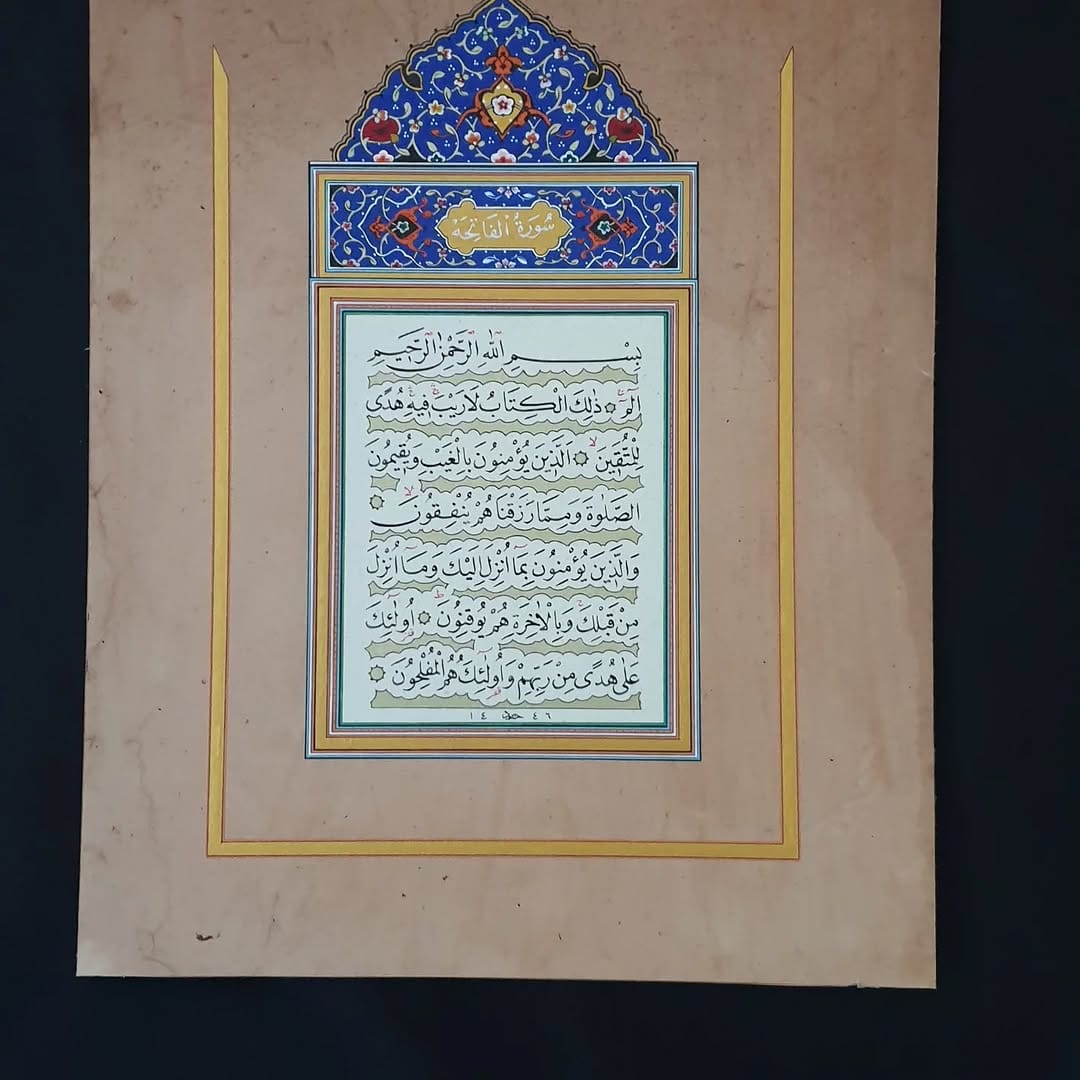 سُورَةُ الْفَاتِحَه
بِسْمِ اللّٰهِ الرَّحْمٰنِ الرَّحِيمِ
الٓمٓ ۞ ذٰلِكَ الْكِتَابُ لَا رَيْبَ فِيهِ هُدًى
لِلْمُتَّقِينَ ۞ اَلَّذِينَ يُؤْمِنُونَ بِالْغَيْبِ وَيُقِيمُونَ
الصَّلٰوةَ وَمِمَّا رَزَقْنَاهُمْ يُنْفِقُونَ ۞
وَالَّذِينَ يُؤْمِنُونَ بِمَٓا اُنْزِلَ اِلَيْكَ وَمَٓا اُنْزِلَ
مِنْ قَبْلِكَ وَبِالْاٰخِرَةِ هُمْ يُوقِنُونَ ۞ اُولٰٓئِكَ
عَلٰى هُدًى مِنْ رَبِّهِمْ وَاُولٰٓئِكَ هُمُ الْمُفْلِحُونَ ۞